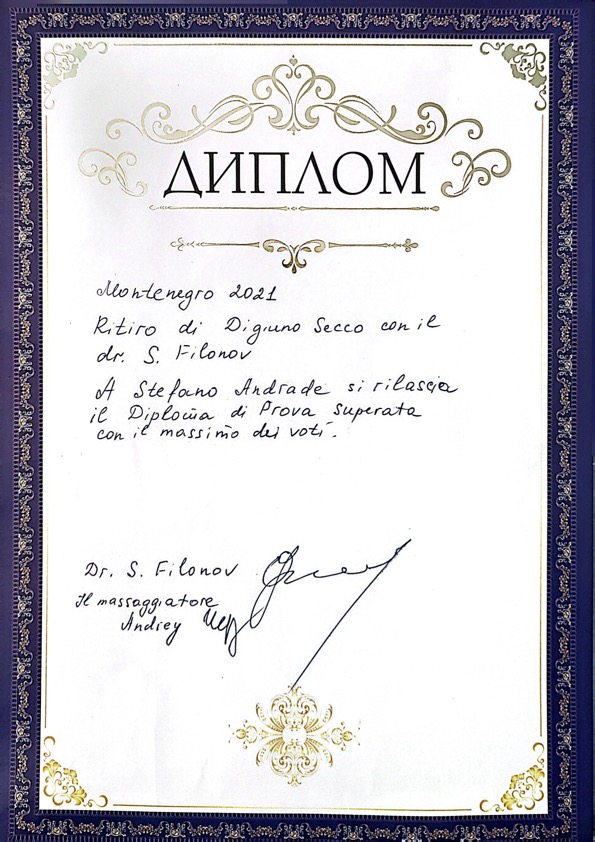 ДИПЛОМ
Montenegro 2021
Ritiro di Digiuno Secco con il
dr. S. Filonov
A Stefano Andrade si rilascia
il Diploma di Prova superata
con il massimo dei voti.
Dr. S. Filonov
Il massaggiatore
Andrey